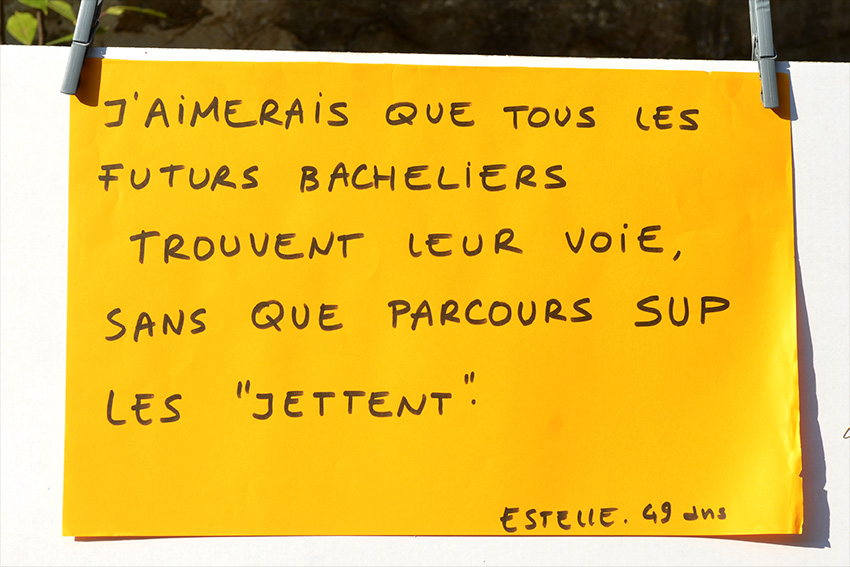 J'AIMERAIS QUE TOUS LES
FUTURS BACHELIERS
TROUVENT LEUR VOIE,
SANS QUE PARCOURS SUP
LES "JETTENT".
ESTELLE. 49 ans